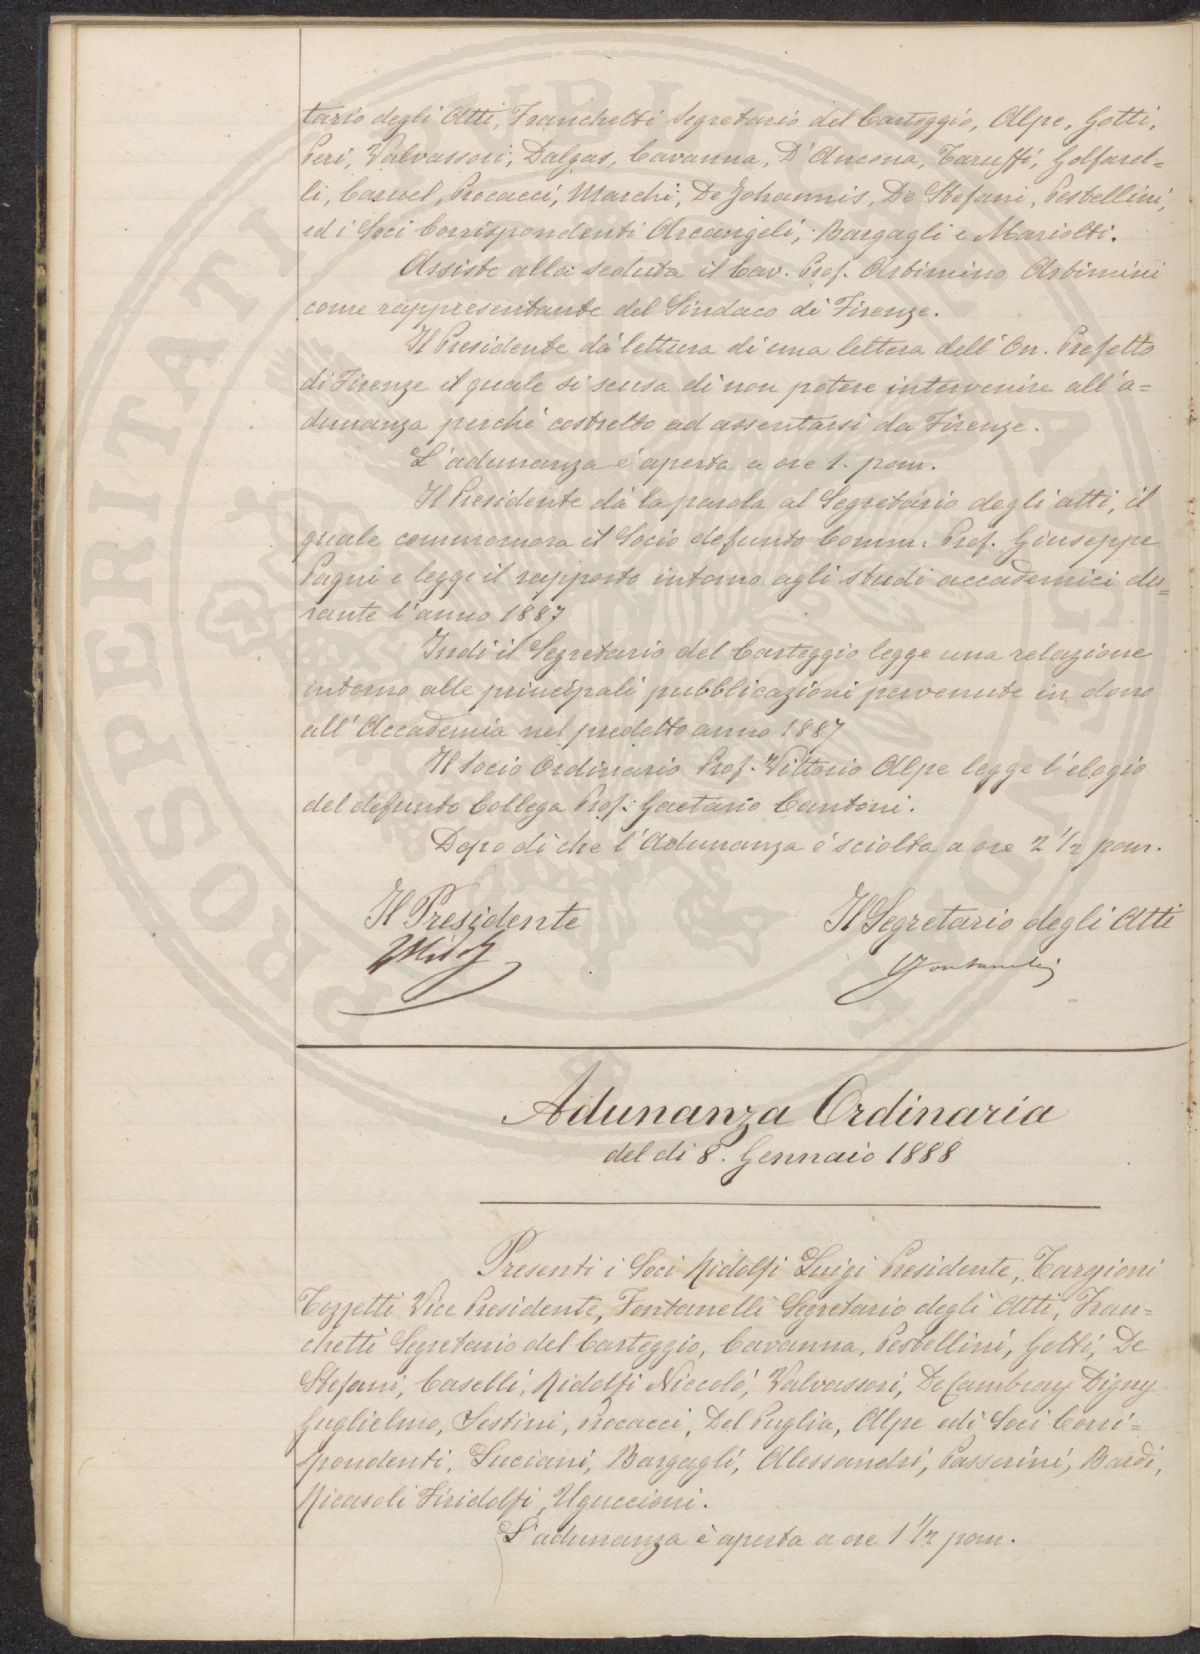 tario degli Atti, Franchetti Segretario del Carteggio, Alpe, Gotti,
Peri, Valvassori, Dalgas, Cavanna, D'Ancona, Taruffi, Golfarel=
li, Caruel, Procacci, Marchi, De Johannis, De Stefani, Pestellini,
ed i Soci Corrispondenti Arcangeli, Bargagli e Mariotti.
Assiste alla seduta il Cav. Prof. Artimino Artimini
come rappresentante del Sindaco di Firenze.
Il Presidente dà lettura di una lettera dell'On. Prefetto
di Firenze il quale si scusa di non potere intervenire all'a=
dunanza perché costretto ad assentarsi da Firenze.
L'adunanza è aperta a ore 1. pom.
Il Presidente dà la parola al Segretario degli atti, il
quale commemora il Socio defunto Comm. Prof. Giuseppe
Pagni e legge il rapporto intorno agli studi accademici du=
rante l'anno 1887
Indi il Segretario del Carteggio legge una relazione
intorno alle principali pubblicazioni pervenute in dono
all'Accademia nel predetto anno 1887
Il Socio Ordinario Prof. Vittorio Alpe legge l'elogio
del defunto Collega Prof. Gaetano Cantoni.
Dopo di che l'Adunanza è sciolta a ore 2 1/2 pom.
Il Presidente Il Segretario degli Atti
Fontanelli
Adunanza Ordinaria
del dì 8. Gennaio 1888
Presenti i Soci Ridolfi Luigi Presidente, Targioni
Tozzetti Vice Presidente, Fontanelli Segretario degli Atti, Fran=
chetti Segretario del Carteggio, Cavanna, Pestellini, Gotti, De
Stefani, Caselli, Ridolfi Niccolò, Valvassori, De Cambray Digny
Guglielmo, Sestini, Procacci, Del Puglia, Alpe ed i Soci Corri=
spondenti, Luciani, Bargagli, Alessandri, Passerini, Bardi,
Ricasoli Firidolfi, Uguccioni.
L'adunanza è aperta a ore 1 1/2 pom.
PROSPERITATI PUBLICAE AUGENDAE